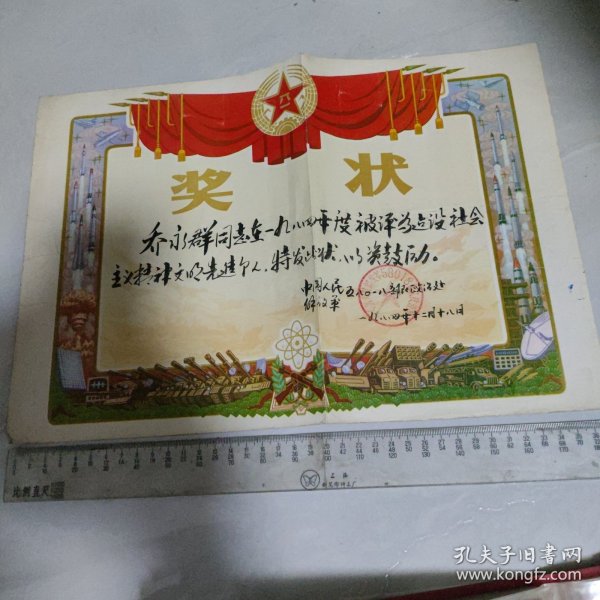 奖 状
乔永群同志在一九八四年度被评为建设社会
主义精神文明先进个人，特发此状，以资鼓励。
中国人民
解放军
五八〇一八部队政治处
一九八四年十二月十八日
比例直尺
上海
孔夫子旧书网
www.kongfz.com